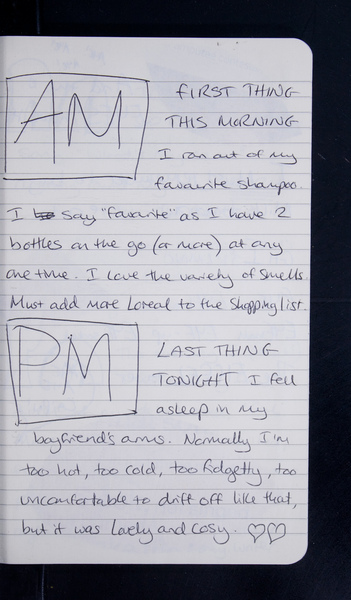 AM
FIRST THING
THIS MORNING
I ran out of my
favourite shampoo.
I say "favourite" as I have 2
bottles on the go (or more) at any
one time. I love the variety of smells.
Must add more Loreal to the shopping list.
PM
LAST THING
TONIGHT I fell
asleep in my
boyfriend's arms. Normally I'm
too hot, too cold, too fidgetty, too
uncomfortable to drift off like that,
but it was lovely and cosy. ♡♡